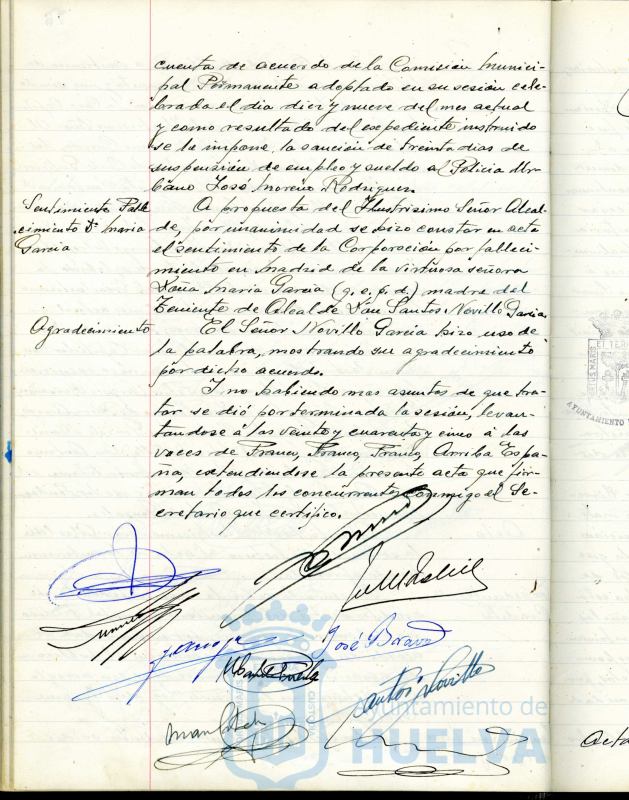 cuenta de acuerdo de la Comisión Munici-
pal Permanente adoptado en su sesión cele-
brada el dia diez y nueve del mes actual
y como resultado del expediente instruido
se le impone la sanción de treinta dias de
suspensión de empleo y sueldo al Policia Ur-
bano José Moreno Rodriguez.
Sentimiento Falle
cimiento Dª Maria
Garcia
A propuesta del Ilustrisimo Señor Alcal-
de, por unanimidad se hizo constar en acta
el sentimiento de la Corporación por falleci-
miento en Madrid de la virtuosa señora
Doña Maria Garcia (q. e. p. d.) madre del
Teniente de Alcalde Don Santos Novillo Garcia.
Agradecimiento
El Señor Novillo Garcia hizo uso de
la palabra, mostrando su agradecimiento
por dicho acuerdo.
Y no habiendo mas asuntos de que tra-
tar se dió por terminada la sesión, levan-
tandose á las veinte y cuarenta y cinco á las
voces de Franco, Franco, Franco, Arriba Espa-
ña, extendiendose la presente acta que fir-
man todos los concurrentes conmigo el Se-
cretario que certifico.
José Bravo
Santos Novillo
Ayuntamiento de
HUELVA
AYUNTAMIENTO
Acta